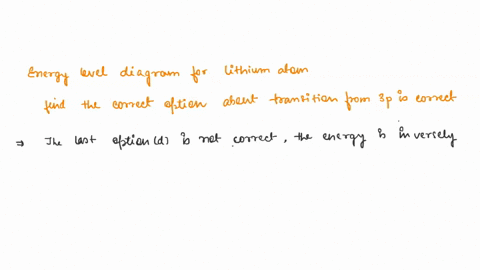 Energy level diagram for lithium atom
find the correct option about transition from 3p is correct
⇒ The last option (d) is not correct, the energy is inversely